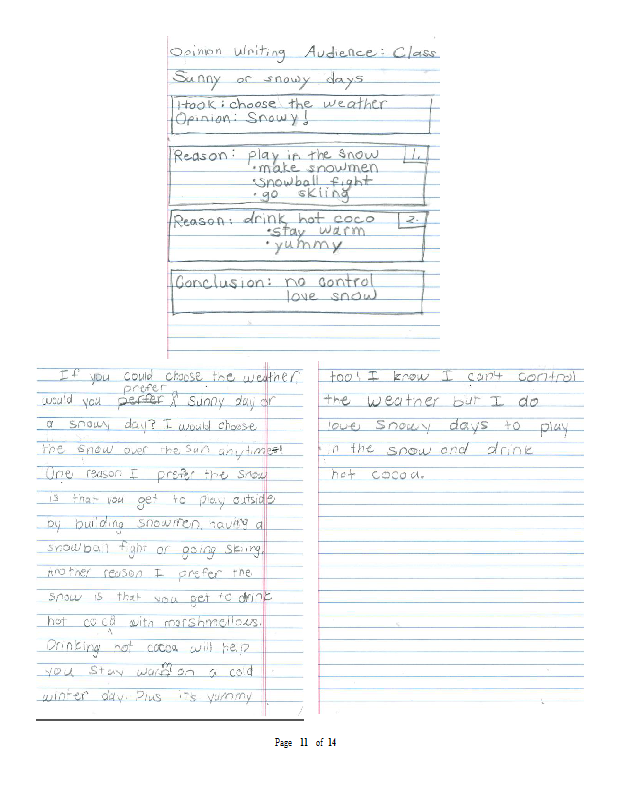 Opinion Writing Audience: Class
Sunny or snowy days
Hook: choose the weather
Opinion: Snowy!
Reason: play in the snow 1.
• make snowmen
• snowball fight
• go skiing
Reason: drink hot coco 2.
• stay warm
• yummy
Conclusion: no control
love snow
If you could choose the weather,
prefer
would you perfer a sunny day or
a snowy day? I would choose
the snow over the sun anytime!
One reason I prefer the snow
is that you get to play outside
by building snowmen, having a
snowball fight or going skiing.
Another reason I prefer the
snow is that you get to drink
hot cocoa with marshmellows.
Drinking hot cocoa will help
you stay warm on a cold
winter day. Plus it's yummy
too! I know I can't control
the weather but I do
love snowy days to play
in the snow and drink
hot cocoa.
Page 11 of 14